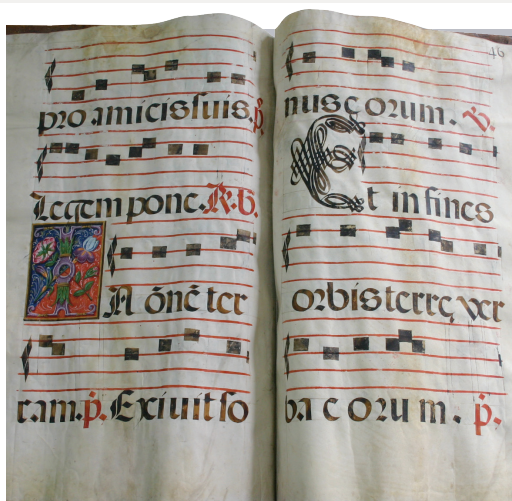 pro amicis suis. p̊.
Legem pone. R. G.
IN ōnē ter
ram. ṗ. Exiuit so
46
nus eorum. v.
Et in fines
orbis terre ver
ba eorum. ṗ.